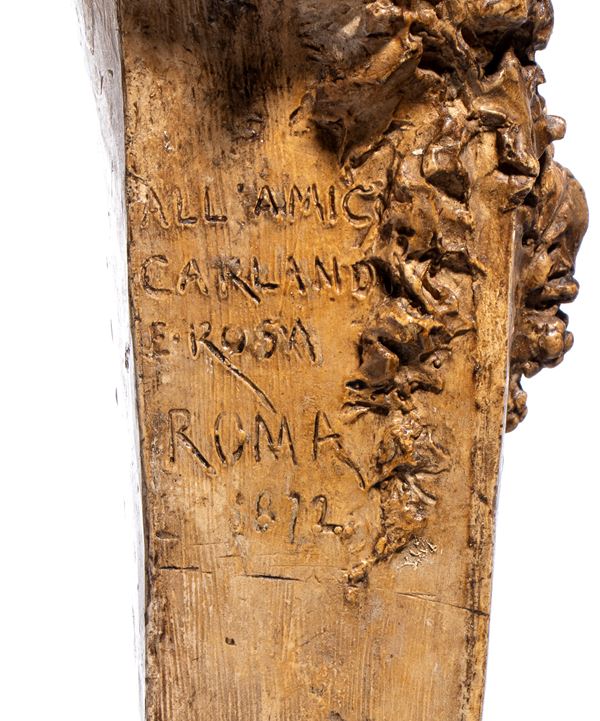 ALL'AMIC
CARLAND
E·ROSA
ROMA
1872